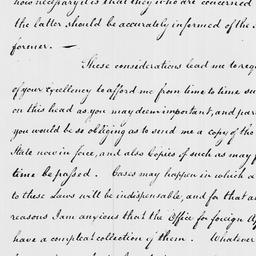 how necessary it is that they who are concerned
the latter should be accurately informed of the
former. —
These considerations lead me to req
of your Excellency to afford me from time to time su
on this head as you may deem important, and par
you would be so obliging as to send me a copy of the
State now in force, and also Copies of such as may f
time be passed. Cases may happen in which a
to these Laws will be indispensable, and for that a
reasons I am anxious that the Office for foreign Af
have a compleat collection of them. Whatever